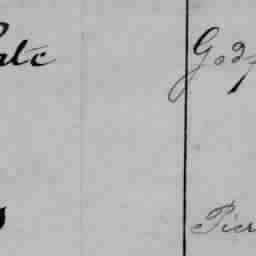 ate Godf
s Pier